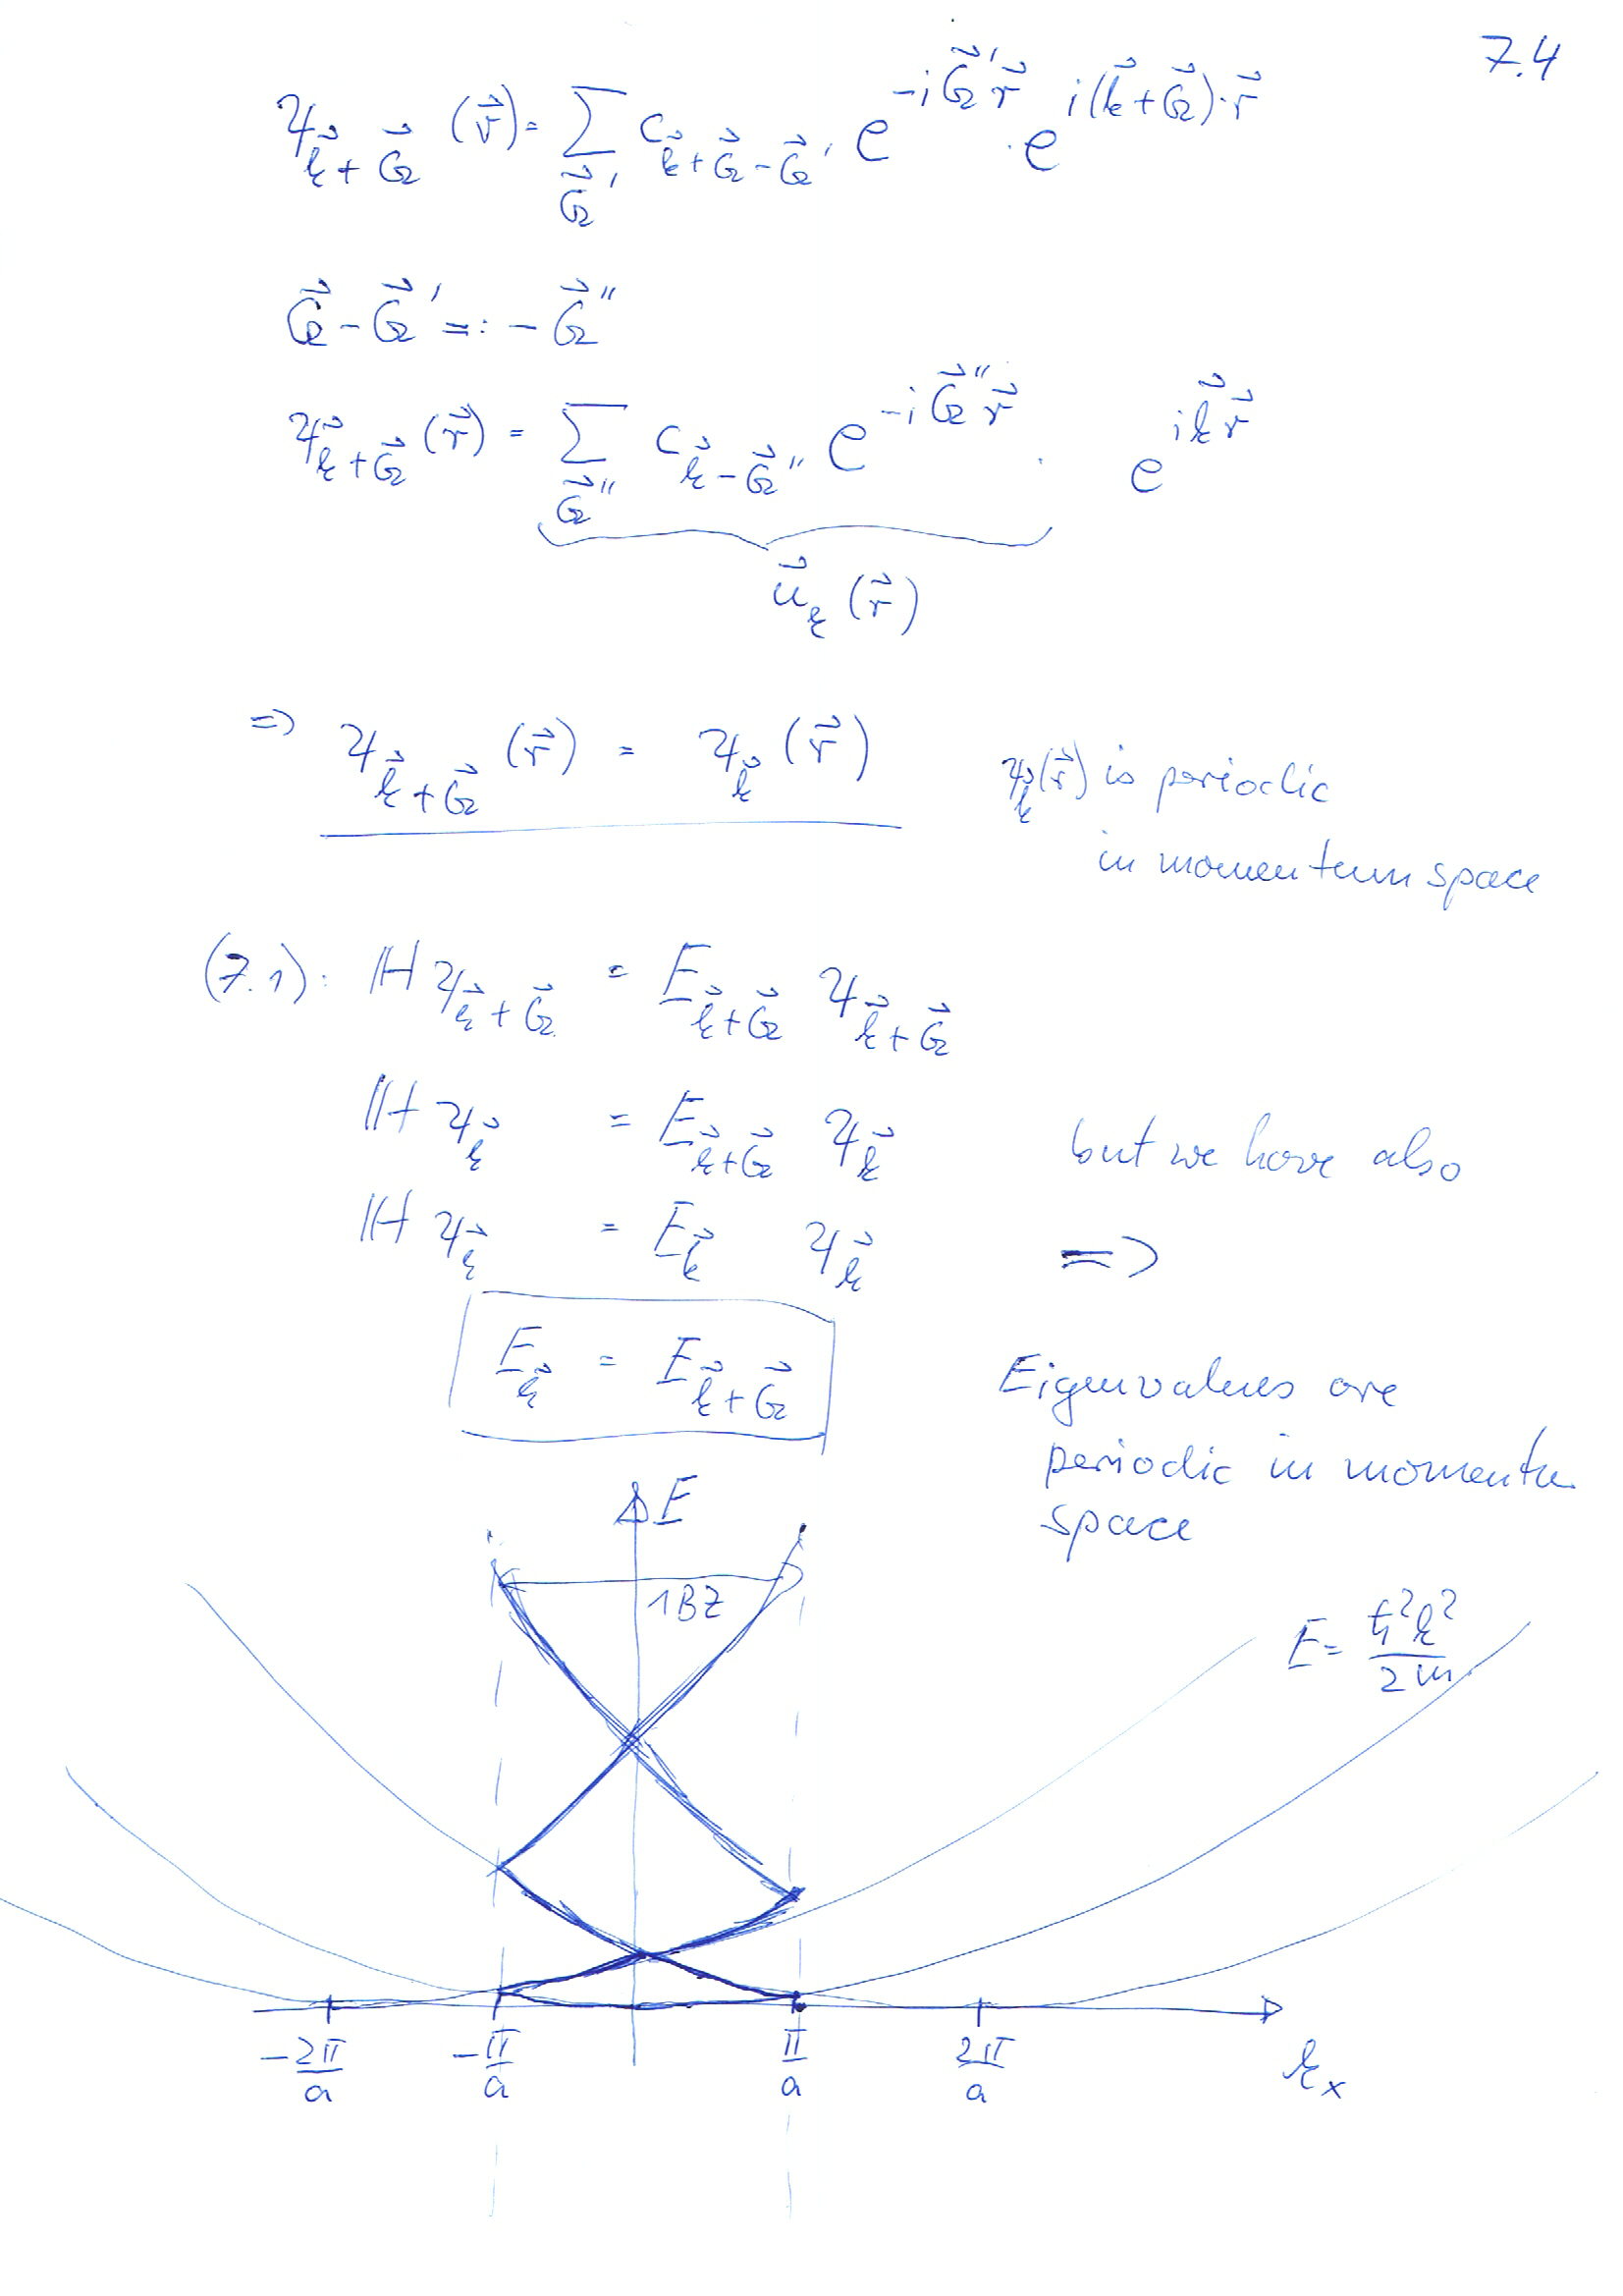 7.4
ψ_{k⃗+G⃗}(r⃗) = ∑_{G⃗'} c_{k⃗+G⃗-G⃗'} e^{-iG⃗'r⃗} · e^{i(k⃗+G⃗)·r⃗}
G⃗ - G⃗' =: - G⃗''
ψ_{k⃗+G⃗}(r⃗) = ∑_{G⃗''} c_{k⃗-G⃗''} e^{-iG⃗''r⃗} · e^{ik⃗r⃗}
u⃗_k(r⃗)
=> ψ_{k⃗+G⃗}(r⃗) = ψ_{k⃗}(r⃗)
ψ_{k⃗}(r⃗) is periodic
in momentum space
(7.1): ℍ ψ_{k⃗+G⃗} = E_{k⃗+G⃗} ψ_{k⃗+G⃗}
ℍ ψ_{k⃗} = E_{k⃗+G⃗} ψ_{k⃗} but we have also
ℍ ψ_{k⃗} = E_{k⃗} ψ_{k⃗} =>
E_{k⃗} = E_{k⃗+G⃗}
Eigenvalues are
periodic in momentum
space
E
1BZ
E = ħ²k²/2m
-2π/a -π/a π/a 2π/a
k_x